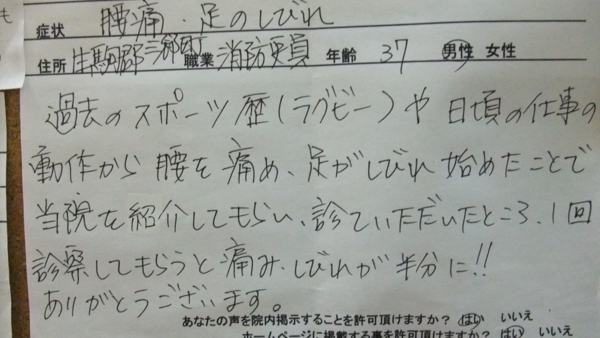 も
症状 腰痛・足のしびれ
住所 生駒郡三郷町 職業 消防吏員 年齢 37 男性 女性
過去のスポーツ歴(ラグビー)や日頃の仕事の
動作から腰を痛め、足がしびれ始めたことで
当院を紹介してもらい、診ていただいたところ、1回
診察してもらうと痛み、しびれが半分に!!
ありがとうございます。
あなたの声を院内掲示することを許可頂けますか? はい いいえ
ホームページに掲載する事を許可頂けますか? はい いいえ